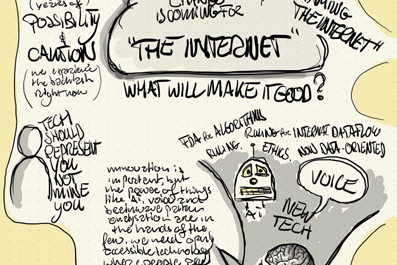 POSSIBILITY
&
CAUTION
(we experience
the backlash
right now)
CHANGE
IS COMING FOR
"THE INTERNET"
WHAT WILL MAKE IT GOOD?
THE INTERNET"
TECH
SHOULD
REPRESENT
YOU
NOT
MINE
YOU
innovation is
important, but
the power of things
like Ai, voice and
are in
the hands of the
few. we need open
accessible technology
where people are
FDA for ALGORITHMS
RULING the INTERNET DATAFLOW
RULING. ETHICS. NON DATA-ORIENTED
AI
VOICE
NEW
TECH